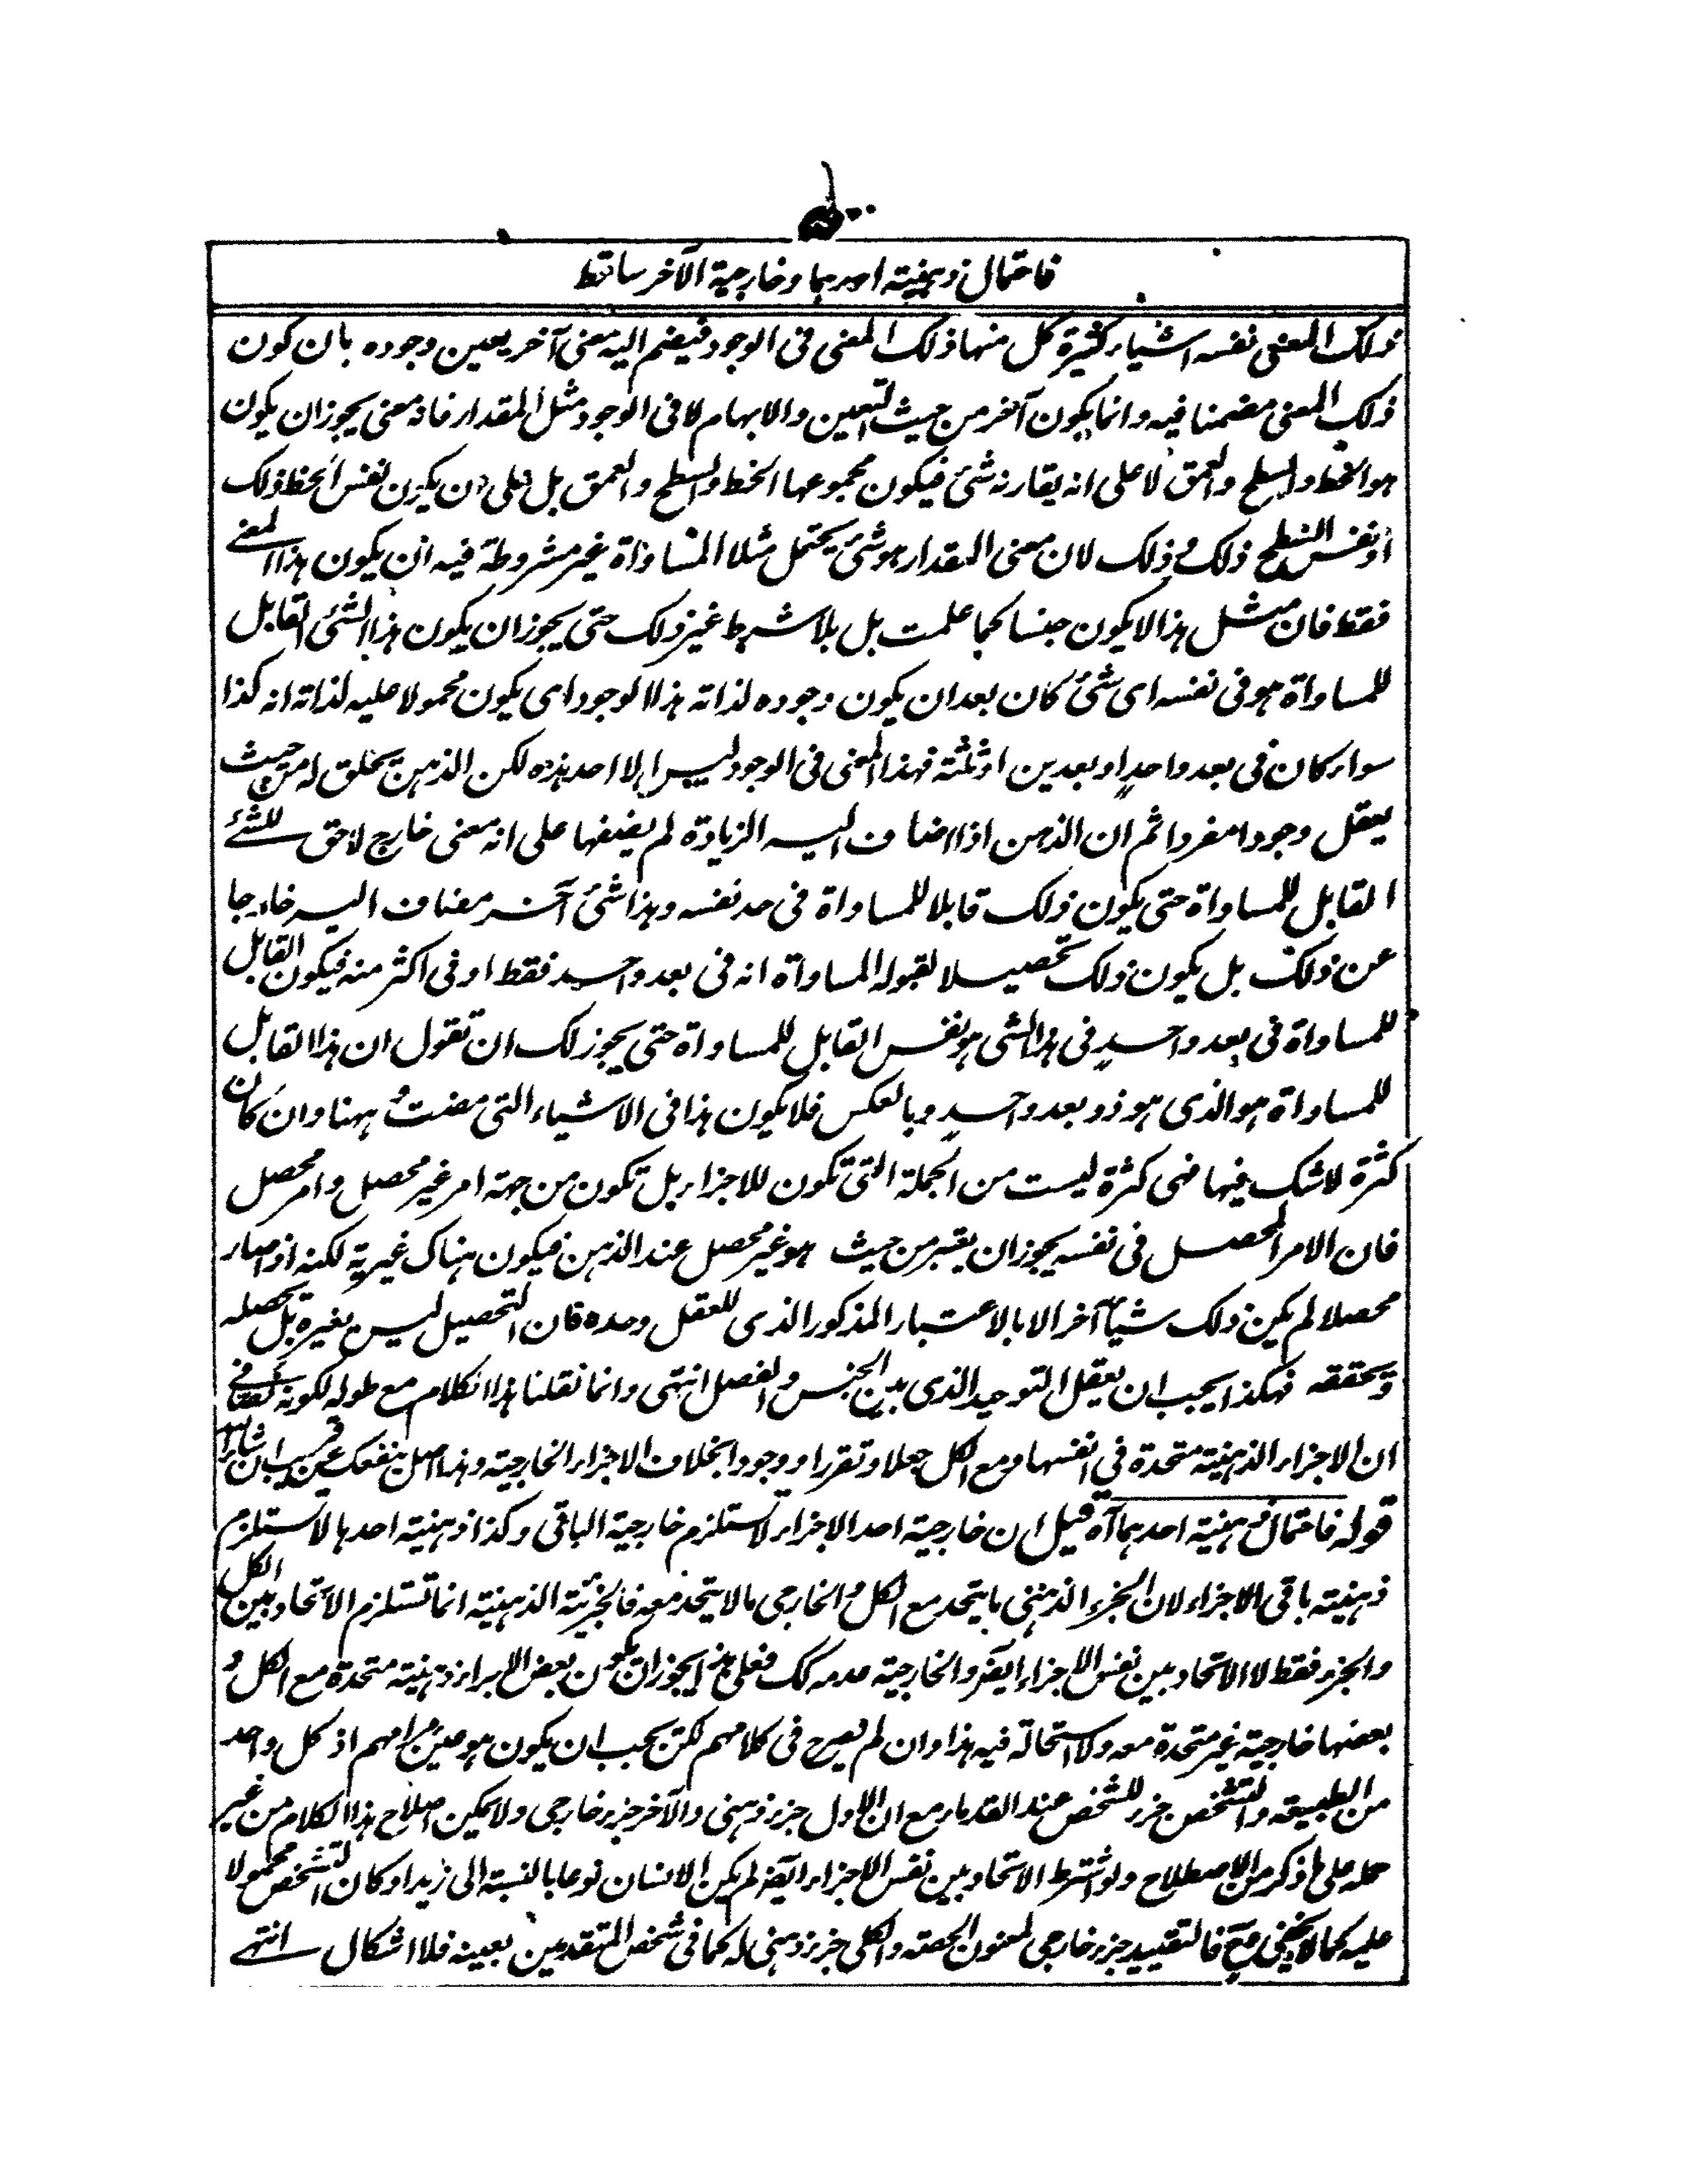 فاحتمال ذهنية احدهما وخارجية الآخر ساقط
ذلك المعنى نفسه اشياء كثيرة كل منها ذلك المعنى فى الوجود فيضم اليه معنى آخر يعين وجوده بان كون
ذلك المعنى مضمنا فيه وانما يكون آخر من حيث التعين والابهام لا فى الوجود مثل المقدار فانه معنى يجوز ان يكون
هو الخط والسطح والعمق لا على انه يقارنه شئ فيكون مجموعها الخط والسطح والعمق بل على ان يكون نفس الخط ذلك
او نفس السطح ذلك و ذلك لان معنى المقدار هو شئ يحتمل مثلا المساواة غير مشروطة فيه ان يكون هذا المعنى
فقط فان مثل هذا لا يكون جنسا كما علمت بل بلا شرط غير ذلك حتى يجوز ان يكون هذا الشئ القابل
للمساواة هو فى نفسه اى شئ كان بعد ان يكون وجوده لذاته هذا الوجود اى يكون محمولا عليه لذاته انه كذا
سواء كان فى بعد واحد او بعدين او ثلثة فهذا المعنى فى الوجود ليس الا احد هذه لكن الذهن يخلق له من حيث
يعقل وجودا مفردا ثم ان الذهن اذا اضاف اليه الزيادة لم يضفها على انه معنى خارج لاحق للشئ
القابل للمساواة حتى يكون ذلك قابلا للمساواة فى حد نفسه وهذا شئ آخر مضاف اليه خارجا
عن ذلك بل يكون ذلك تحصيلا لقبوله المساواة انه فى بعد واحد فقط او فى اكثر منه فيكون القابل
للمساواة فى بعد واحد فى هذا الشى هو نفس القابل للمساواة حتى يجوز لك ان تقول ان هذا القابل
للمساواة هو الذى هو ذو بعد واحد وبالعكس فلا يكون هذا فى الاشياء التى مضت وههنا وان كان
كثرة لا شك فيها فهى كثرة ليست من الجملة التى تكون للاجزاء بل تكون من جهة امر غير محصل وامر محصل
فان الامر المحصل فى نفسه يجوز ان يعتبر من حيث هو غير محصل عند الذهن فيكون هناك غيرية لكنه اذ صار
محصلا لم يكن ذلك شيأ آخر الا بالاعتبار المذكور الذى للعقل وحده فان التحصيل ليس يغيره بل يحصله
ويحققه فهكذا يجب ان يعقل التوحيد الذى بين الجنس والفصل انتهى وانما نقلنا هذا الكلام مع طوله لكونه نصا فى
ان الاجزاء الذهنية متحدة فى انفسها ومع الكل جعلا وتقررا ووجودا بخلاف الاجزاء الخارجية وهذا اصل ينفعك عن قريب ان شاء الله
قوله فاحتمال ذهنية احدهما آه قيل ان خارجية احد الاجزاء لا تستلزم خارجية الباقى وكذا ذهنية احدها لا تستلزم
ذهنية باقى الاجزاء لان الجزء الذهنى ما يتحد مع الكل والخارجى ما لا يتحد معه فالجزئية الذهنية انما تستلزم الاتحاد بين الكل
والجزء فقط لا الاتحاد بين نفس الاجزاء ايضا والخارجية عدمه كك فعلى هذا يجوز ان يكون بعض الاجزاء ذهنية متحدة مع الكل و
بعضها خارجية غير متحدة معه ولا استحالة فيه هذا وان لم يصرح فى كلامهم لكن يجب ان يكون هو عين مرامهم اذ كل واحد
من الطبيعة والتشخص جزء للشخص عند القدماء مع ان الاول جزء ذهنى والآخر جزء خارجى ولا يمكن اصلاح هذا الكلام من غير
حمله على ما ذكر من الاصطلاح ولو اشترط الاتحاد بين نفس الاجزاء ايضا لم يكن الانسان نوعا بالنسبة الى زيد او كان التشخص محمولا
عليه كما لا يخفى فالتقييد جزء خارجى لمعنون الحصة والكلى جزء ذهنى له كما فى شخص المتقدمين بعينه فلا اشكال انتهى